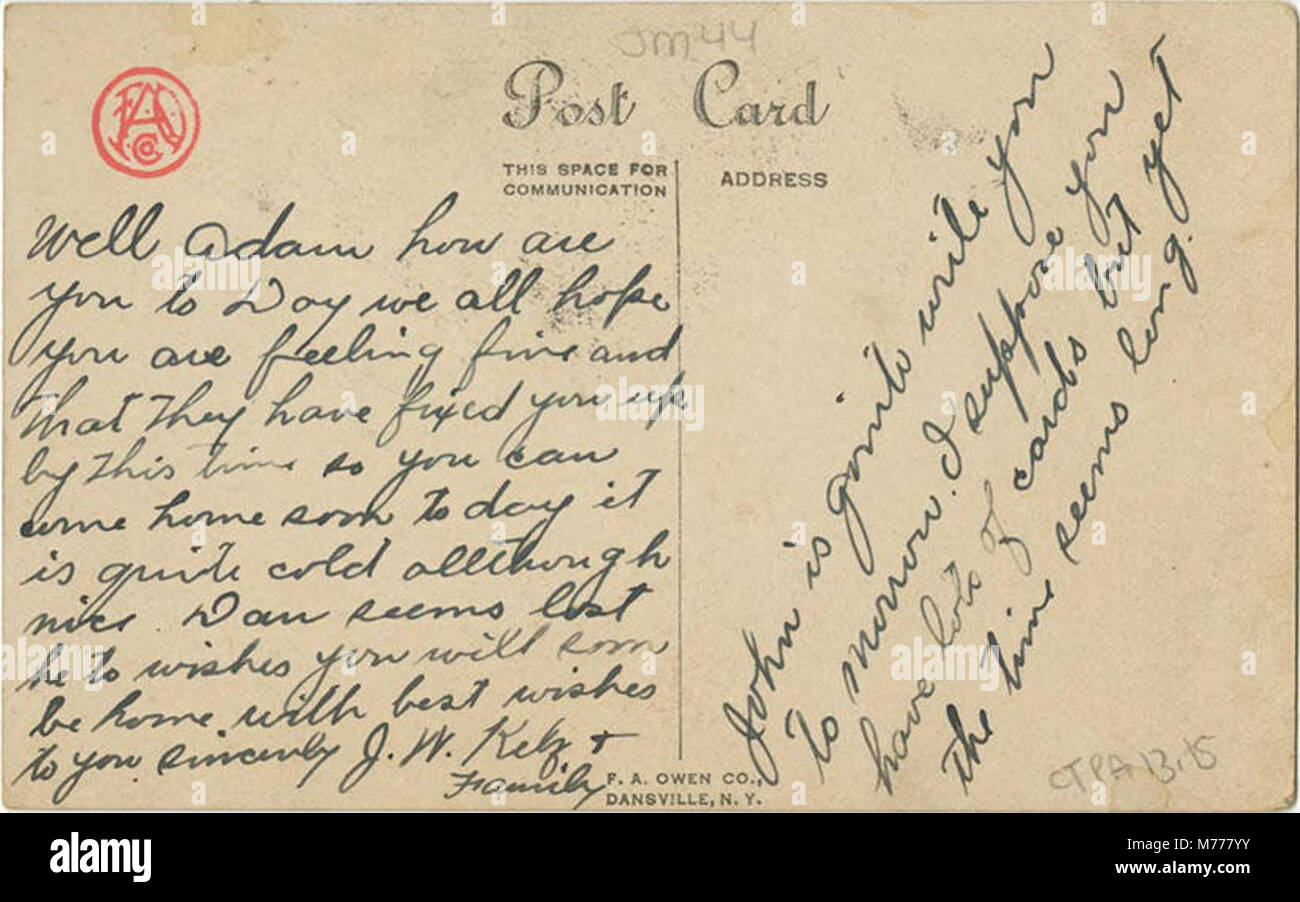 JM44
Post Card
THIS SPACE FOR
COMMUNICATION
ADDRESS
Well Adam how are
you to Day we all hope
you are feeling fine and
that they have fixed you up
by this time so you can
come home soon to day it
is quite cold allthough
nice. Dan seems lost
he to wishes you will soon
be home with best wishes
to you sincerly J. W. Kelz +
Family
F. A. OWEN CO.,
DANSVILLE, N. Y.
John is gointo write you
to morrow. I suppose you
have lots of cards but yet
the time seems long.
CTPA 13.15
FAO
Co
a
alamy
Image ID: M777YY
www.alamy.com